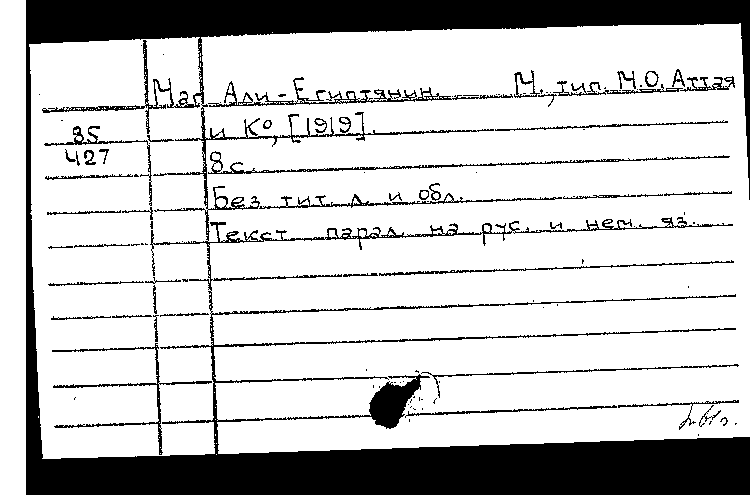 Маг Али-Египтянин. М., тип. М.О. Аттая
и К⁰, [1919].
85
427
8 с.
Без тит. л. и обл.
Текст парал. на рус. и нем. яз.